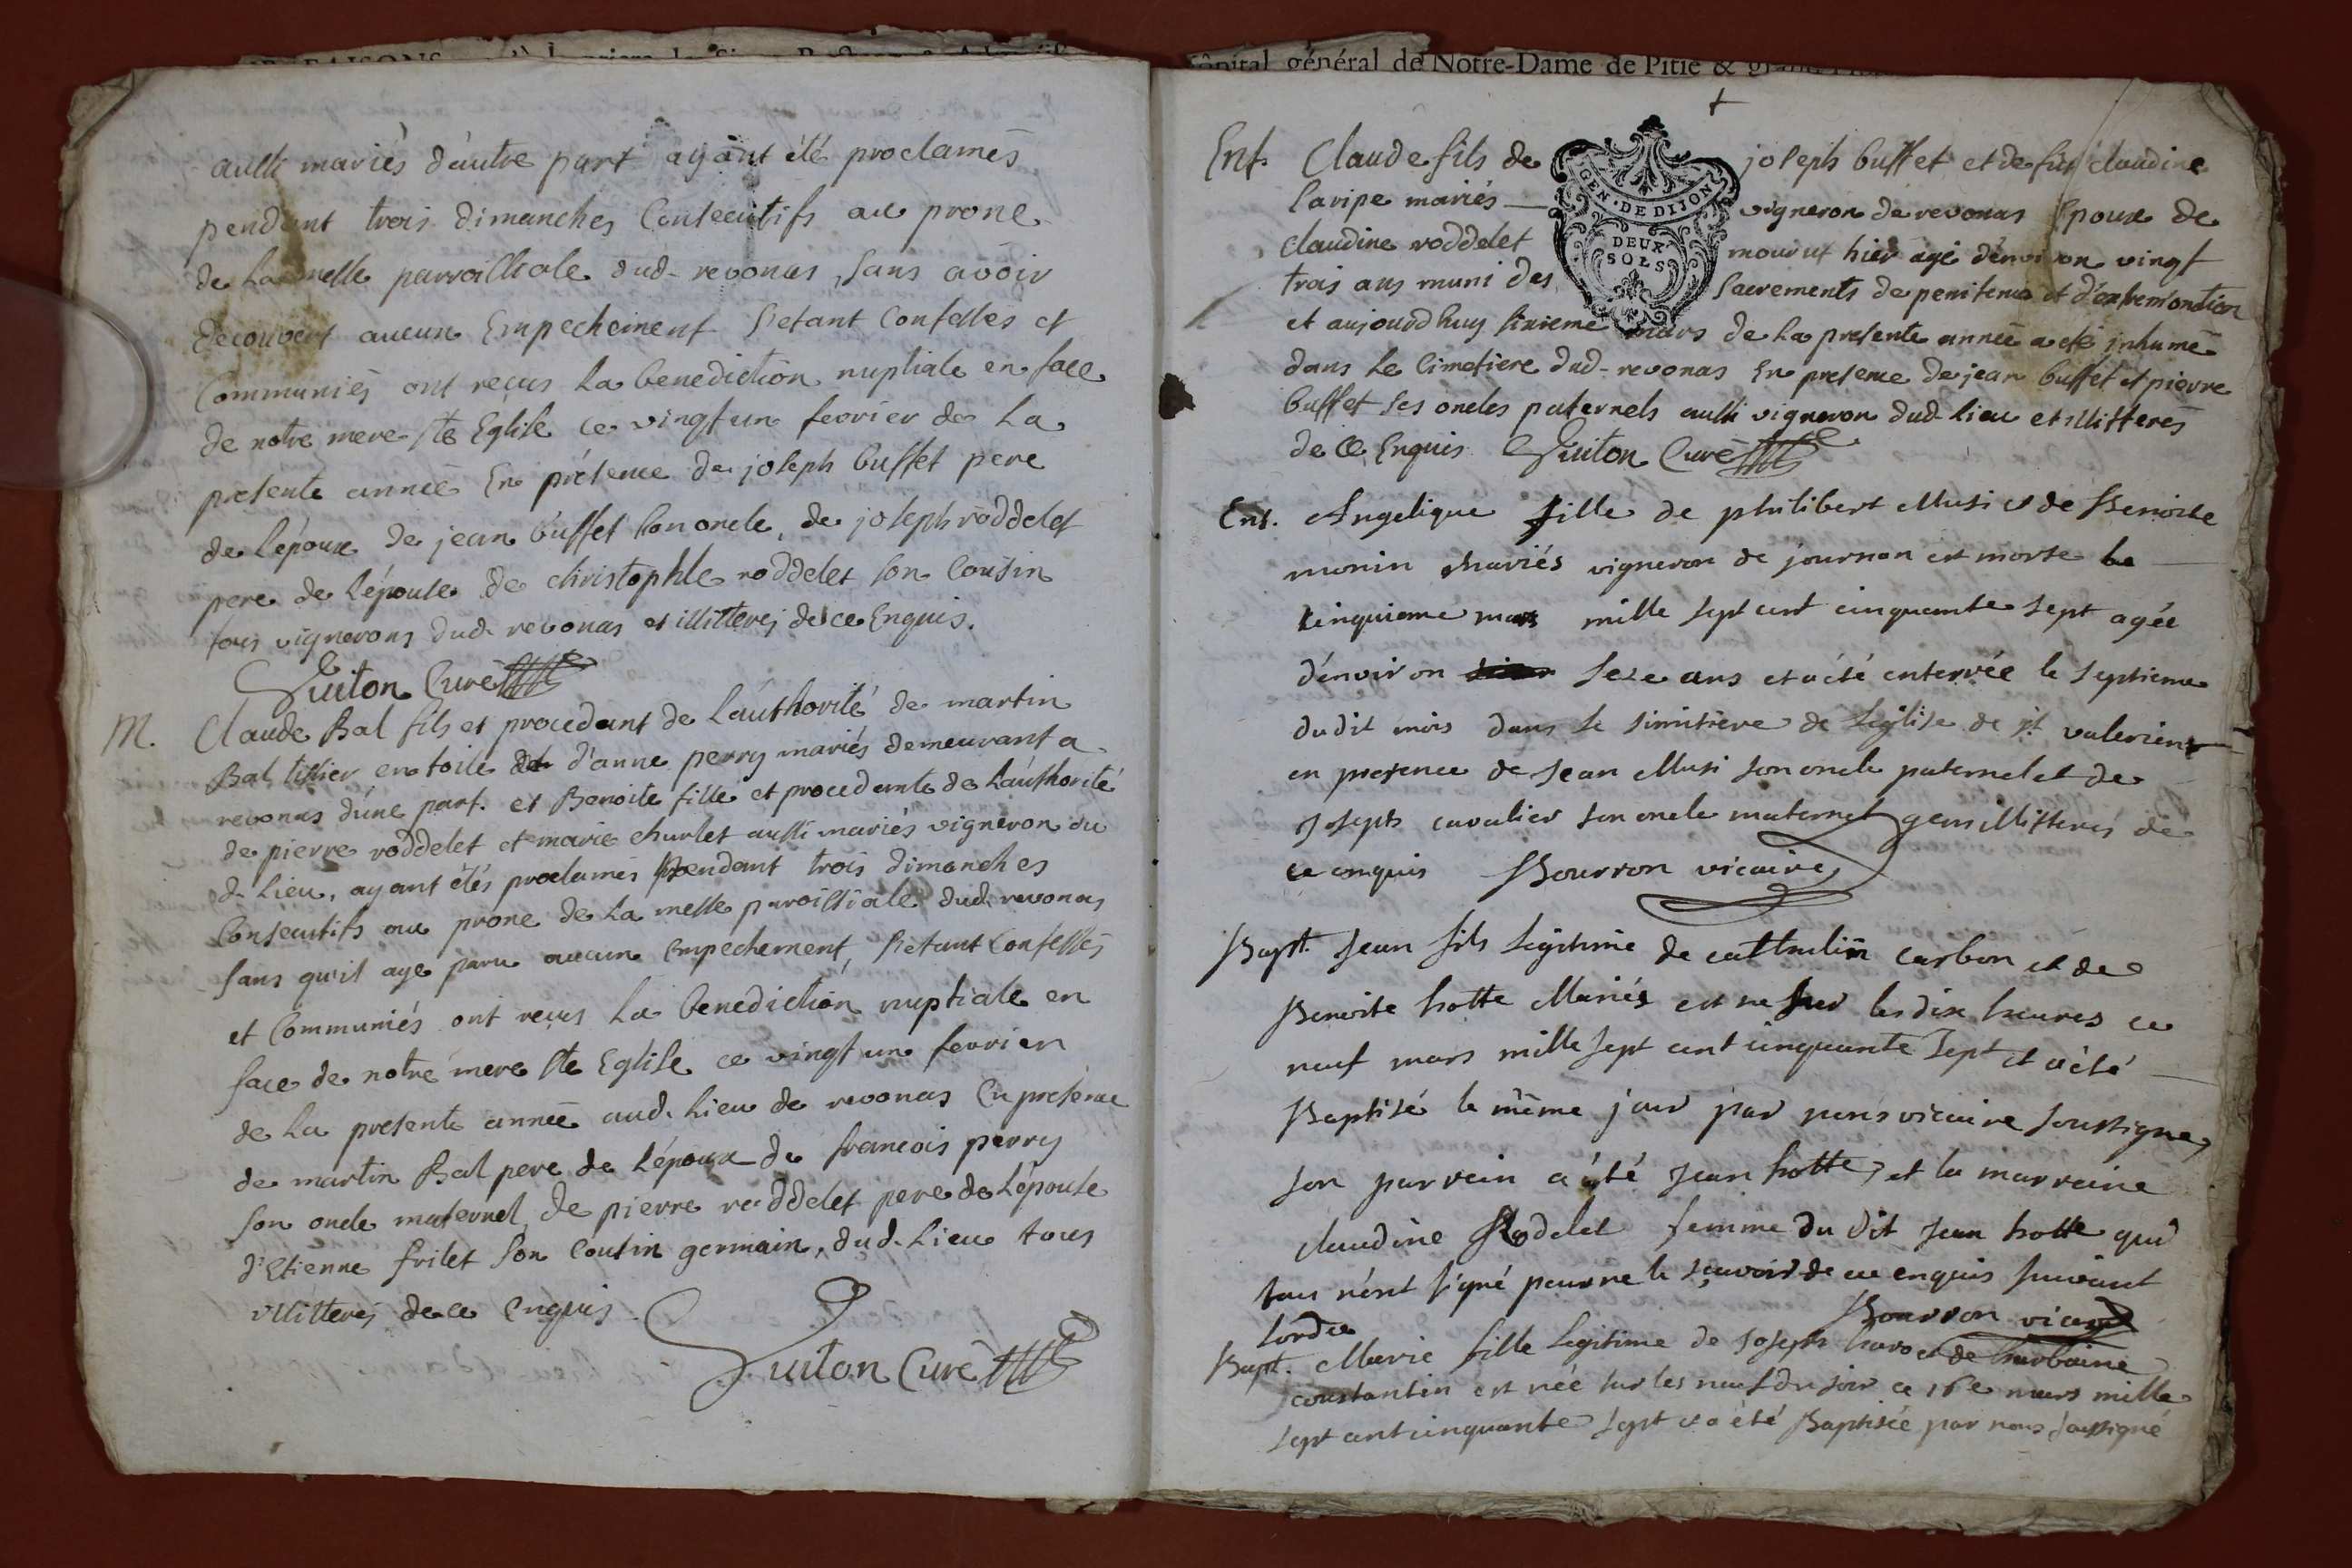 aussi mariés d'autre part ayant été proclamés
pendant trois dimanches Consecutifs au prone
de La messe parroissiale dud. revonas, sans avoir
decouvert aucun Empechement setant Confessés et
Communiés ont reçus La benediction nuptiale en face
de notre mere ste Eglise ce vingt un fevrier de La
presente année En présence de joseph buffet pere
de Lépoux de jean buffet son oncle, de joseph roddelet
pere de Lépouse de christophle roddelet son Cousin
tous vignerons dud. revonas et illitteres de ce Enquis.
Guiton Curé
M. Claude Bal fils et procedant de Láuthorité de martin
Bal tissier en toile d'anne perry mariés demeurant a
revonas d'une part. et Benoite fille et procedante de Láuthorité
de pierre roddelet et marie churlet aussi mariés vigneron du
d. Lieu, ayant étés proclamés pendant trois dimanches
Consecutifs au prone de La messe paroissiale dud. revonas
sans qu'il aye paru aucun Empechement, setant Confessés
et Communiés ont reçus La benediction nuptiale en
face de notre mere ste Eglise ce vingt un fevrier
de La presente année aud. Lieu de revonas En présence
de martin Bal pere de Lépoux de francois perry
son oncle maternel de pierre roddelet pere de Lépouse
d'Etienne frilet son Cousin germain, dud. Lieu tous
illitteres de ce Enquis
Guiton Curé
hôpital général de Notre-Dame de Pitié &
Ent. Claude fils de joseph buffet et de fut claudine
Laripe mariés vigneron de revonas Epoux de
claudine roddelet mourut hier agé dénviron vingt
trois ans muni des sacrements de penitence et d'extremonction
et aujourdhuy sixieme mars de La presente année a eté inhumé
dans Le Cimetiere dud. revonas En presence de jean buffet et pierre
buffet ses oncles paternels aussi vigneron dud. lieu et illitterés
de Ce Enquis Guiton Curé
GEN. DE DIJON
DEUX
SOLS
Ent. Angelique fille de philibert Musi et de Benoite
monin Mariés vigneron de journan est morte le
cinquieme mars mille sept cent cinquante sept agée
dénviron seze ans et a été enterrée le septieme
dudit mois dans le simitière de Léglise de st. valerien
en presence de Jean Musi son oncle paternel et de
Joseph cavalier son oncle maternel gens illitterés de
ce enquis Bourron vicaire
Bapt. Jean fils Legitime de cathulin carbon et de
Benoite hotte Mariés est né sur les dix heures ce
neuf mars mille sept cent cinquante sept et a été
Baptisé le même jour par nous vicaire soussigné,
son parrein a été Jean hotte, et la marreine
claudine Rodelet femme du dit Jean hotte qui
tous n'ont signé pour ne le sçavoir de ce enquis suivant
Lordce
Bourron vicaire
Bapt. Marie fille Legitime de Joseph et de
constantin est née sur les neuf du soir ce 16e mars mille
sept cent cinquante sept et a été Baptisée par nous soussigné